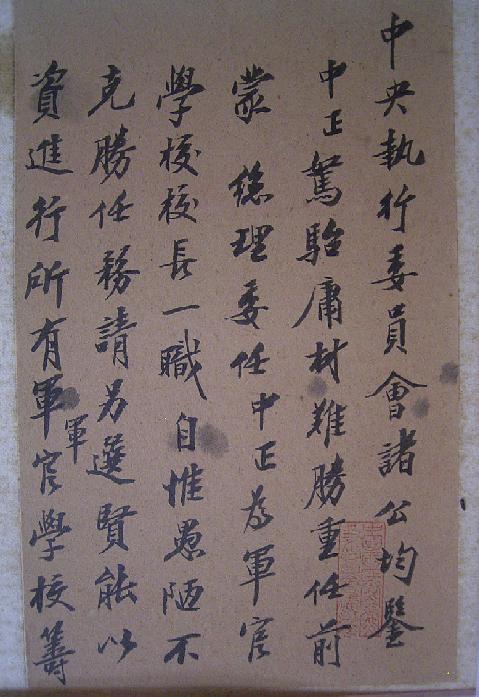 中央執行委員會諸公均鑒
中正駑駘庸材難勝重任前
蒙 總理委任中正為軍官
學校校長一職自惟愚陋不
克勝任務請另選賢能以
軍
資進行所有軍官學校籌